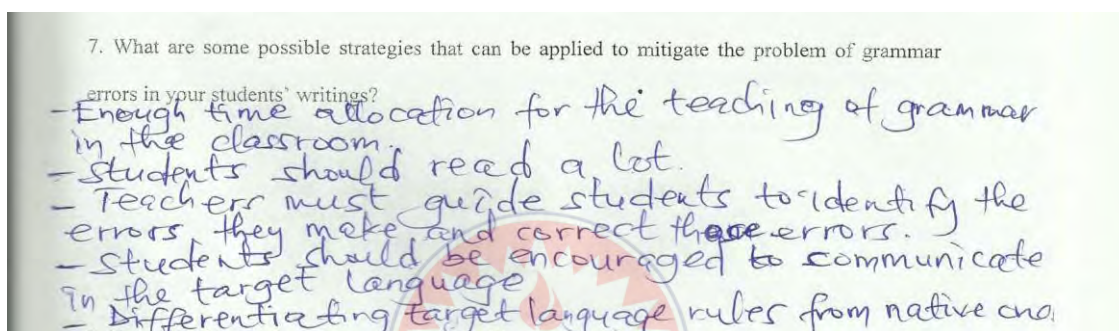 7. What are some possible strategies that can be applied to mitigate the problem of grammar
errors in your students' writings?
- Enough time allocation for the teaching of grammar
in the classroom.
- Students should read a lot.
- Teachers must guide students to identify the
errors they make and correct those errors.
- Students should be encouraged to communicate
in the target language
- Differentiating target language rules from native